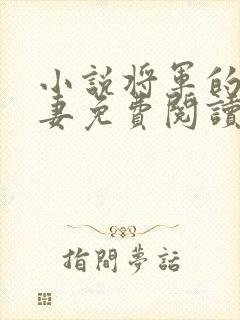 小說將軍的
妻免費閱讀
指間夢話